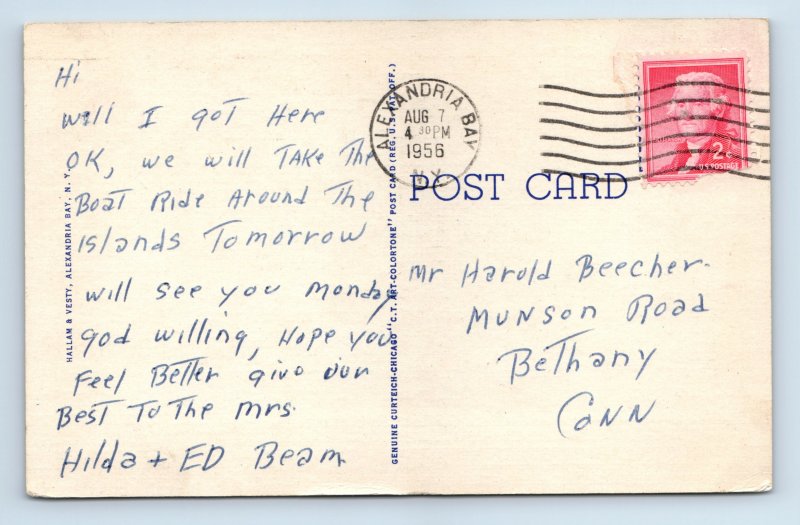 Hi
will I got Here
OK, we will TAKE The
Boat Ride Around The
islands Tomorrow
will see you monday
god willing, Hope you
Feel Better give our
Best To The mrs.
Hilda + ED Beam
HALLAM & VESTY, ALEXANDRIA BAY, N. Y.
GENUINE CURTEICH-CHICAGO "C.T. ART-COLORTONE" POST CARD (REG. U.S. PAT. OFF.)
ALEXANDRIA BAY
AUG 7
4 30 PM
1956
N.Y.
2¢
U.S. POSTAGE
POST CARD
Mr Harold Beecher.
Munson Road
Bethany
Conn